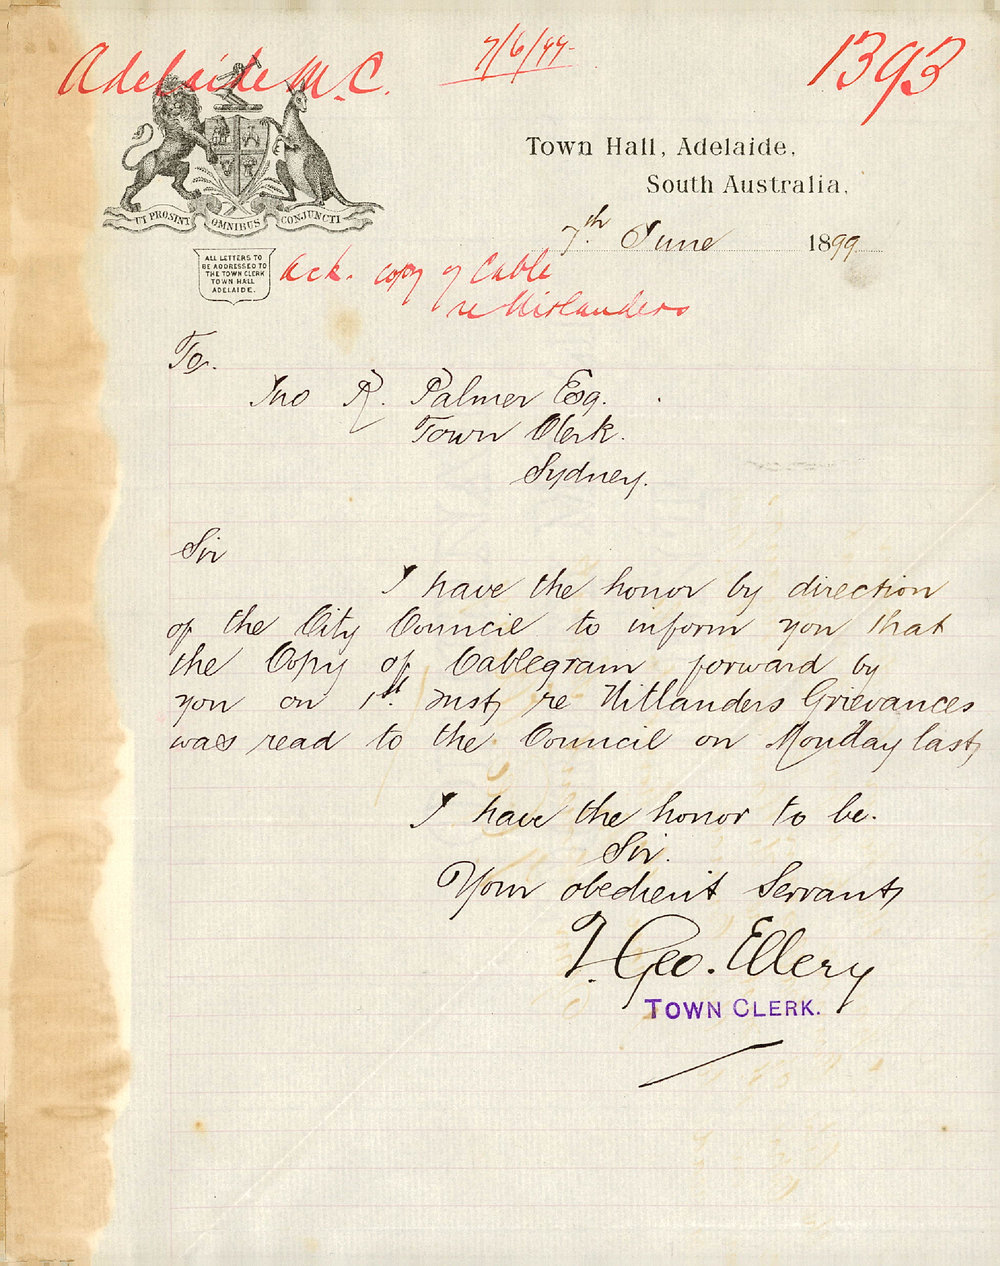 Adelaide M.C.
7/6/99
1393
UT PROSINT OMNIBUS CONJUNCTI
Town Hall, Adelaide,
South Australia,
7th. June 1899
ALL LETTERS TO
BE ADDRESSED TO
THE TOWN CLERK
TOWN HALL
ADELAIDE.
Ack. copy of Cable
re Uitlanders
To.
Jno R. Palmer Esq.
Town Clerk.
Sydney.
Sir
I have the honor by direction
of the City Council to inform you that
the Copy of Cablegram forward by
you on 1st. Inst, re Uitlanders Grievances
was read to the Council on Monday last,
I have the honor to be.
Sir.
Your obedient Servant,
T. Geo. Ellery
TOWN CLERK.